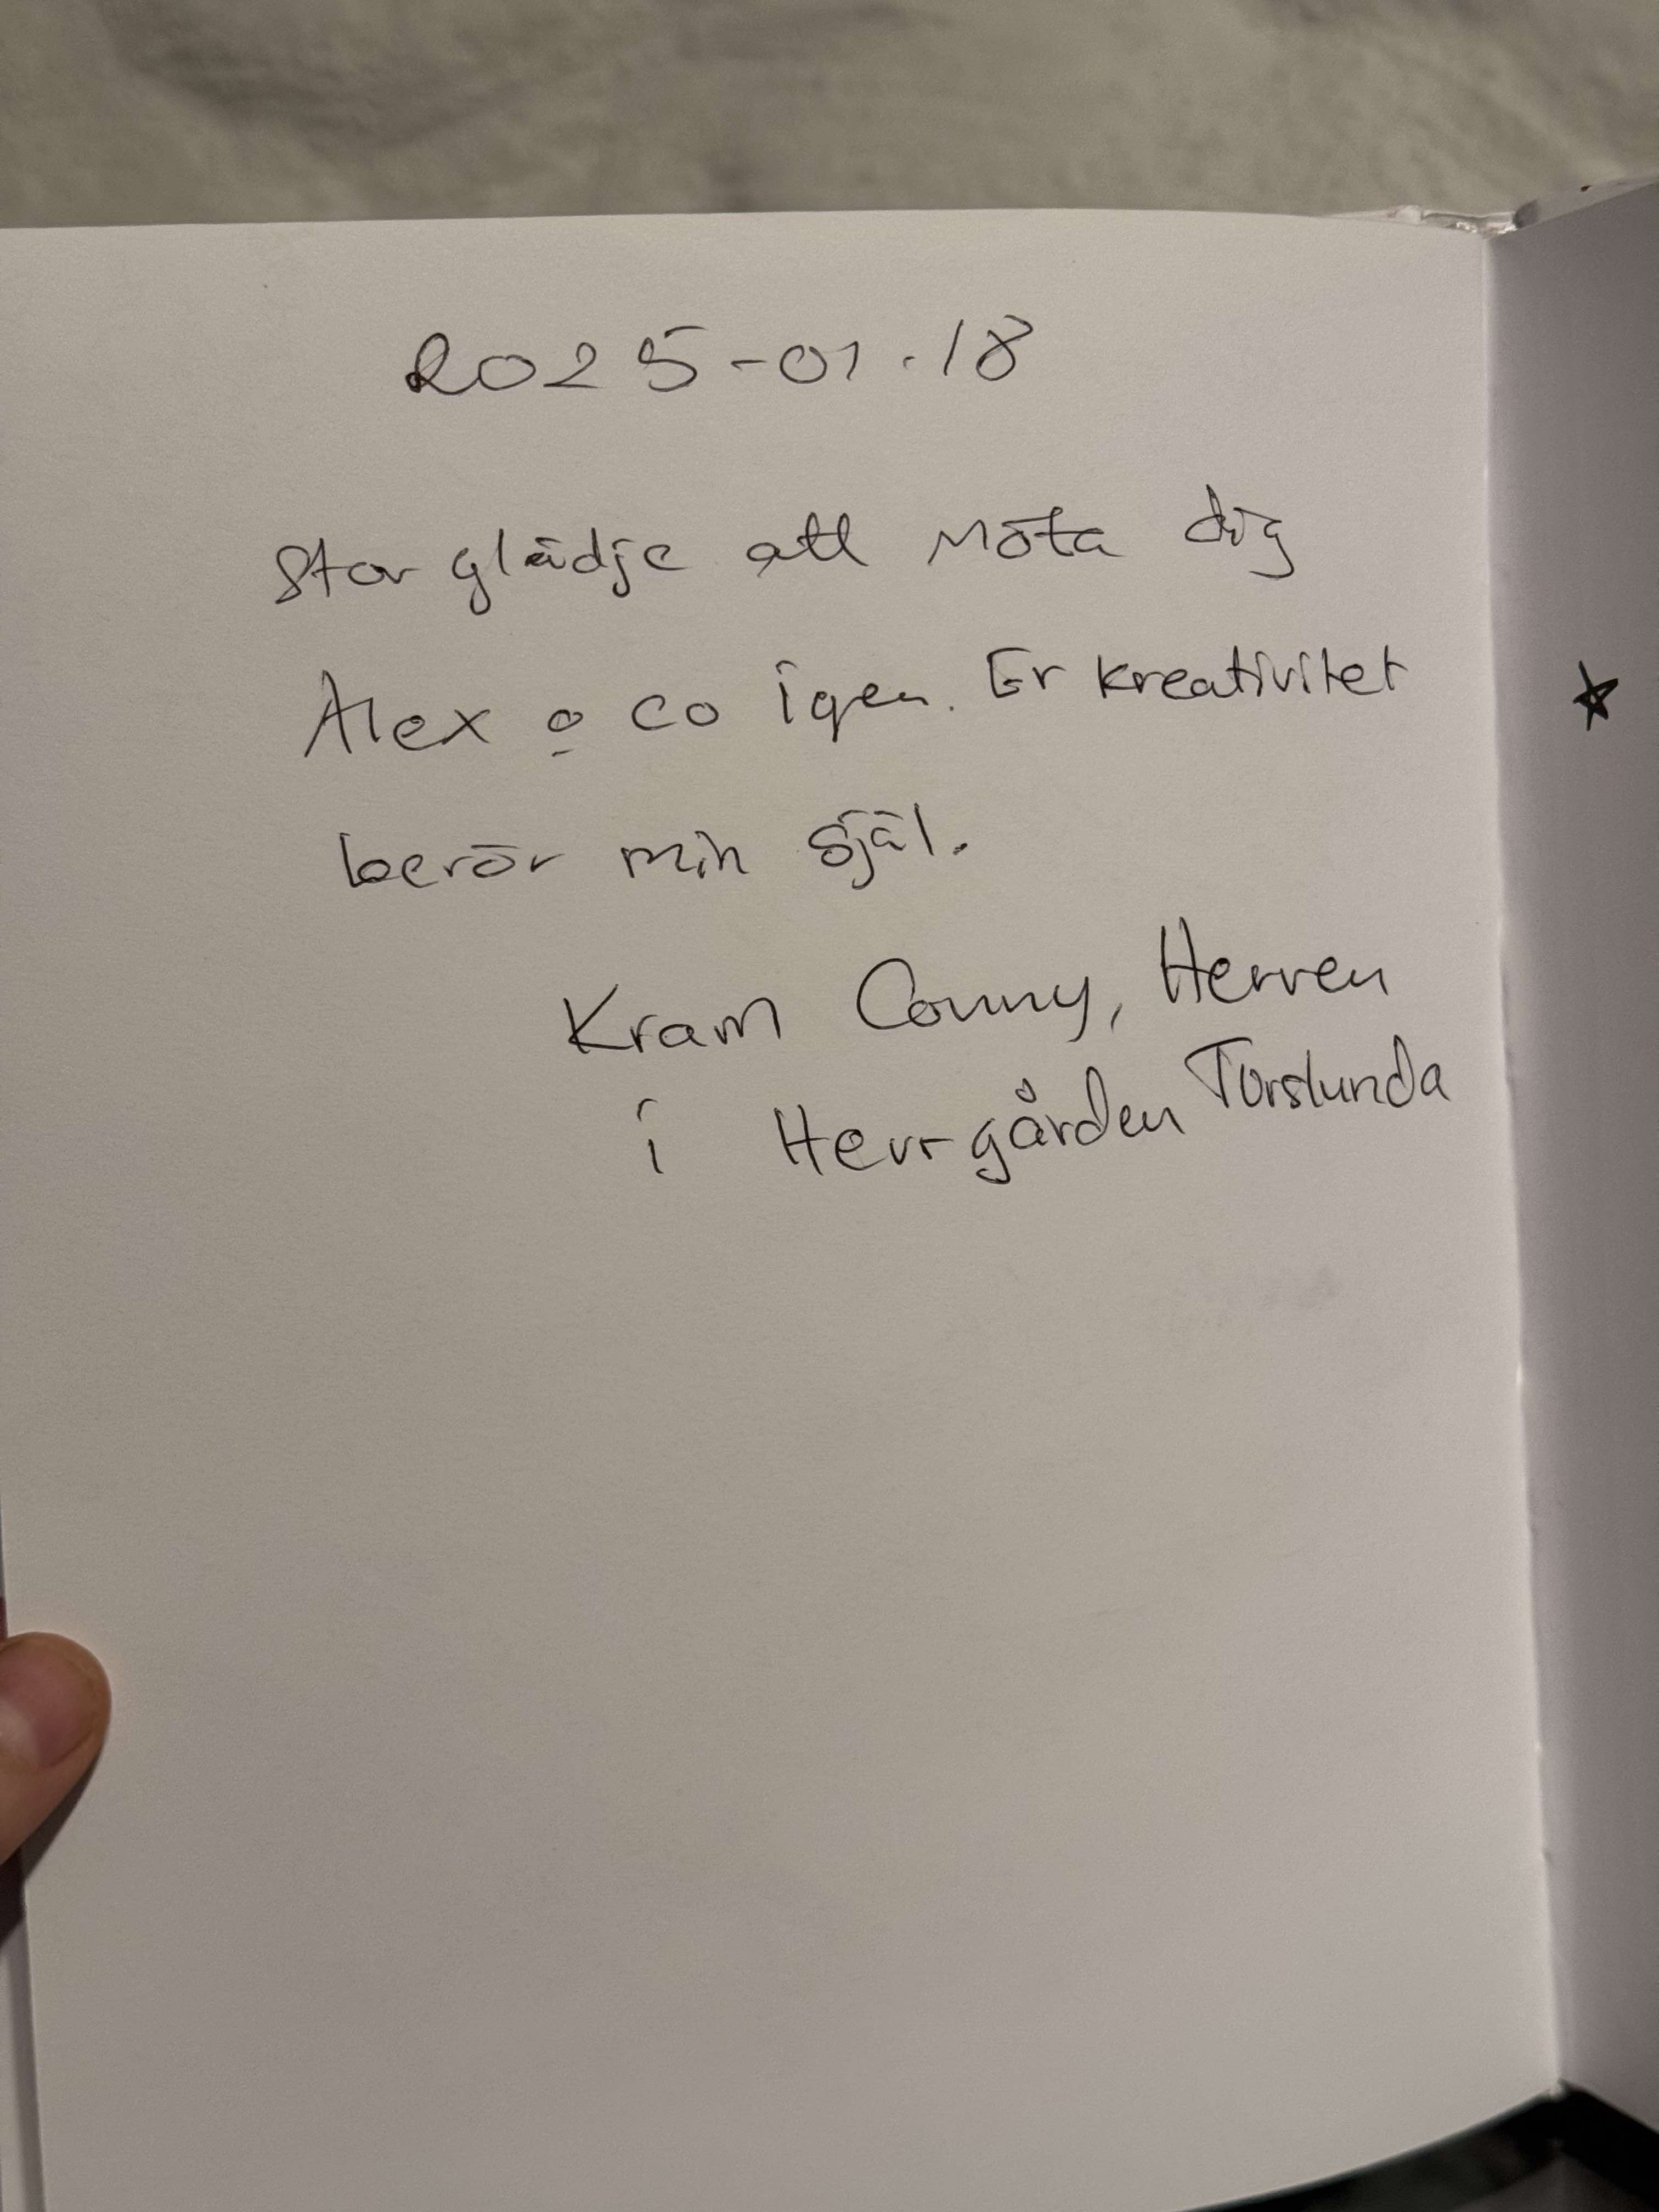 2025-01-18
Stor glädje att möta dig
Alex o co igen. Er kreativitet
berör min själ.
Kram Conny, Herren
i Herrgården Torslunda